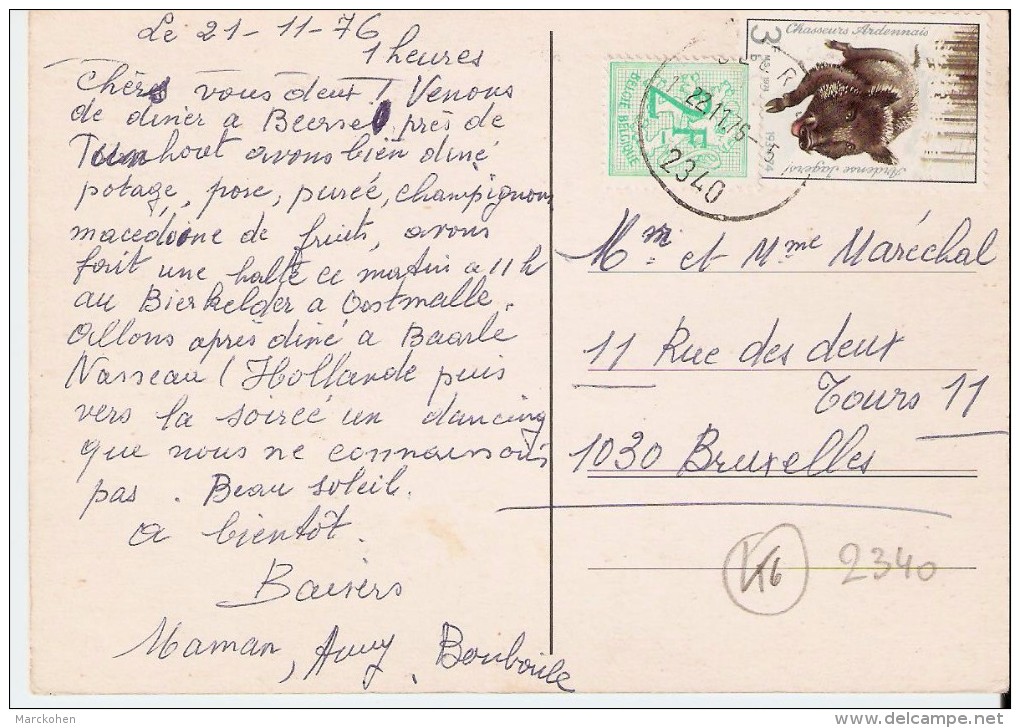 Le 21-11-76
1 heures
Chères vous deux! Venons
de diner a Beerse près de
Turnhout avons bien diné
potage, pose, purée, champignons
macédoine de fruits, avons
fait une halte ce matin a 11 h
au Bierkelder a Oostmalle.
Allons après diné a Baarle
Nasseau (Hollande puis
vers la soirée un dancing
que nous ne connaissons
pas. Beau soleil.
a bientôt.
Baisers
Maman, Anny, Bouboule
Chasseurs Ardennais
3F
1934
Ardense Jagers
BELGIE BELGIQUE
2F
22.11.76
2340
Mr et Mme Maréchal
11 Rue des deux
Tours 11
1030 Bruxelles
2340
Marckohen
delcampe.net